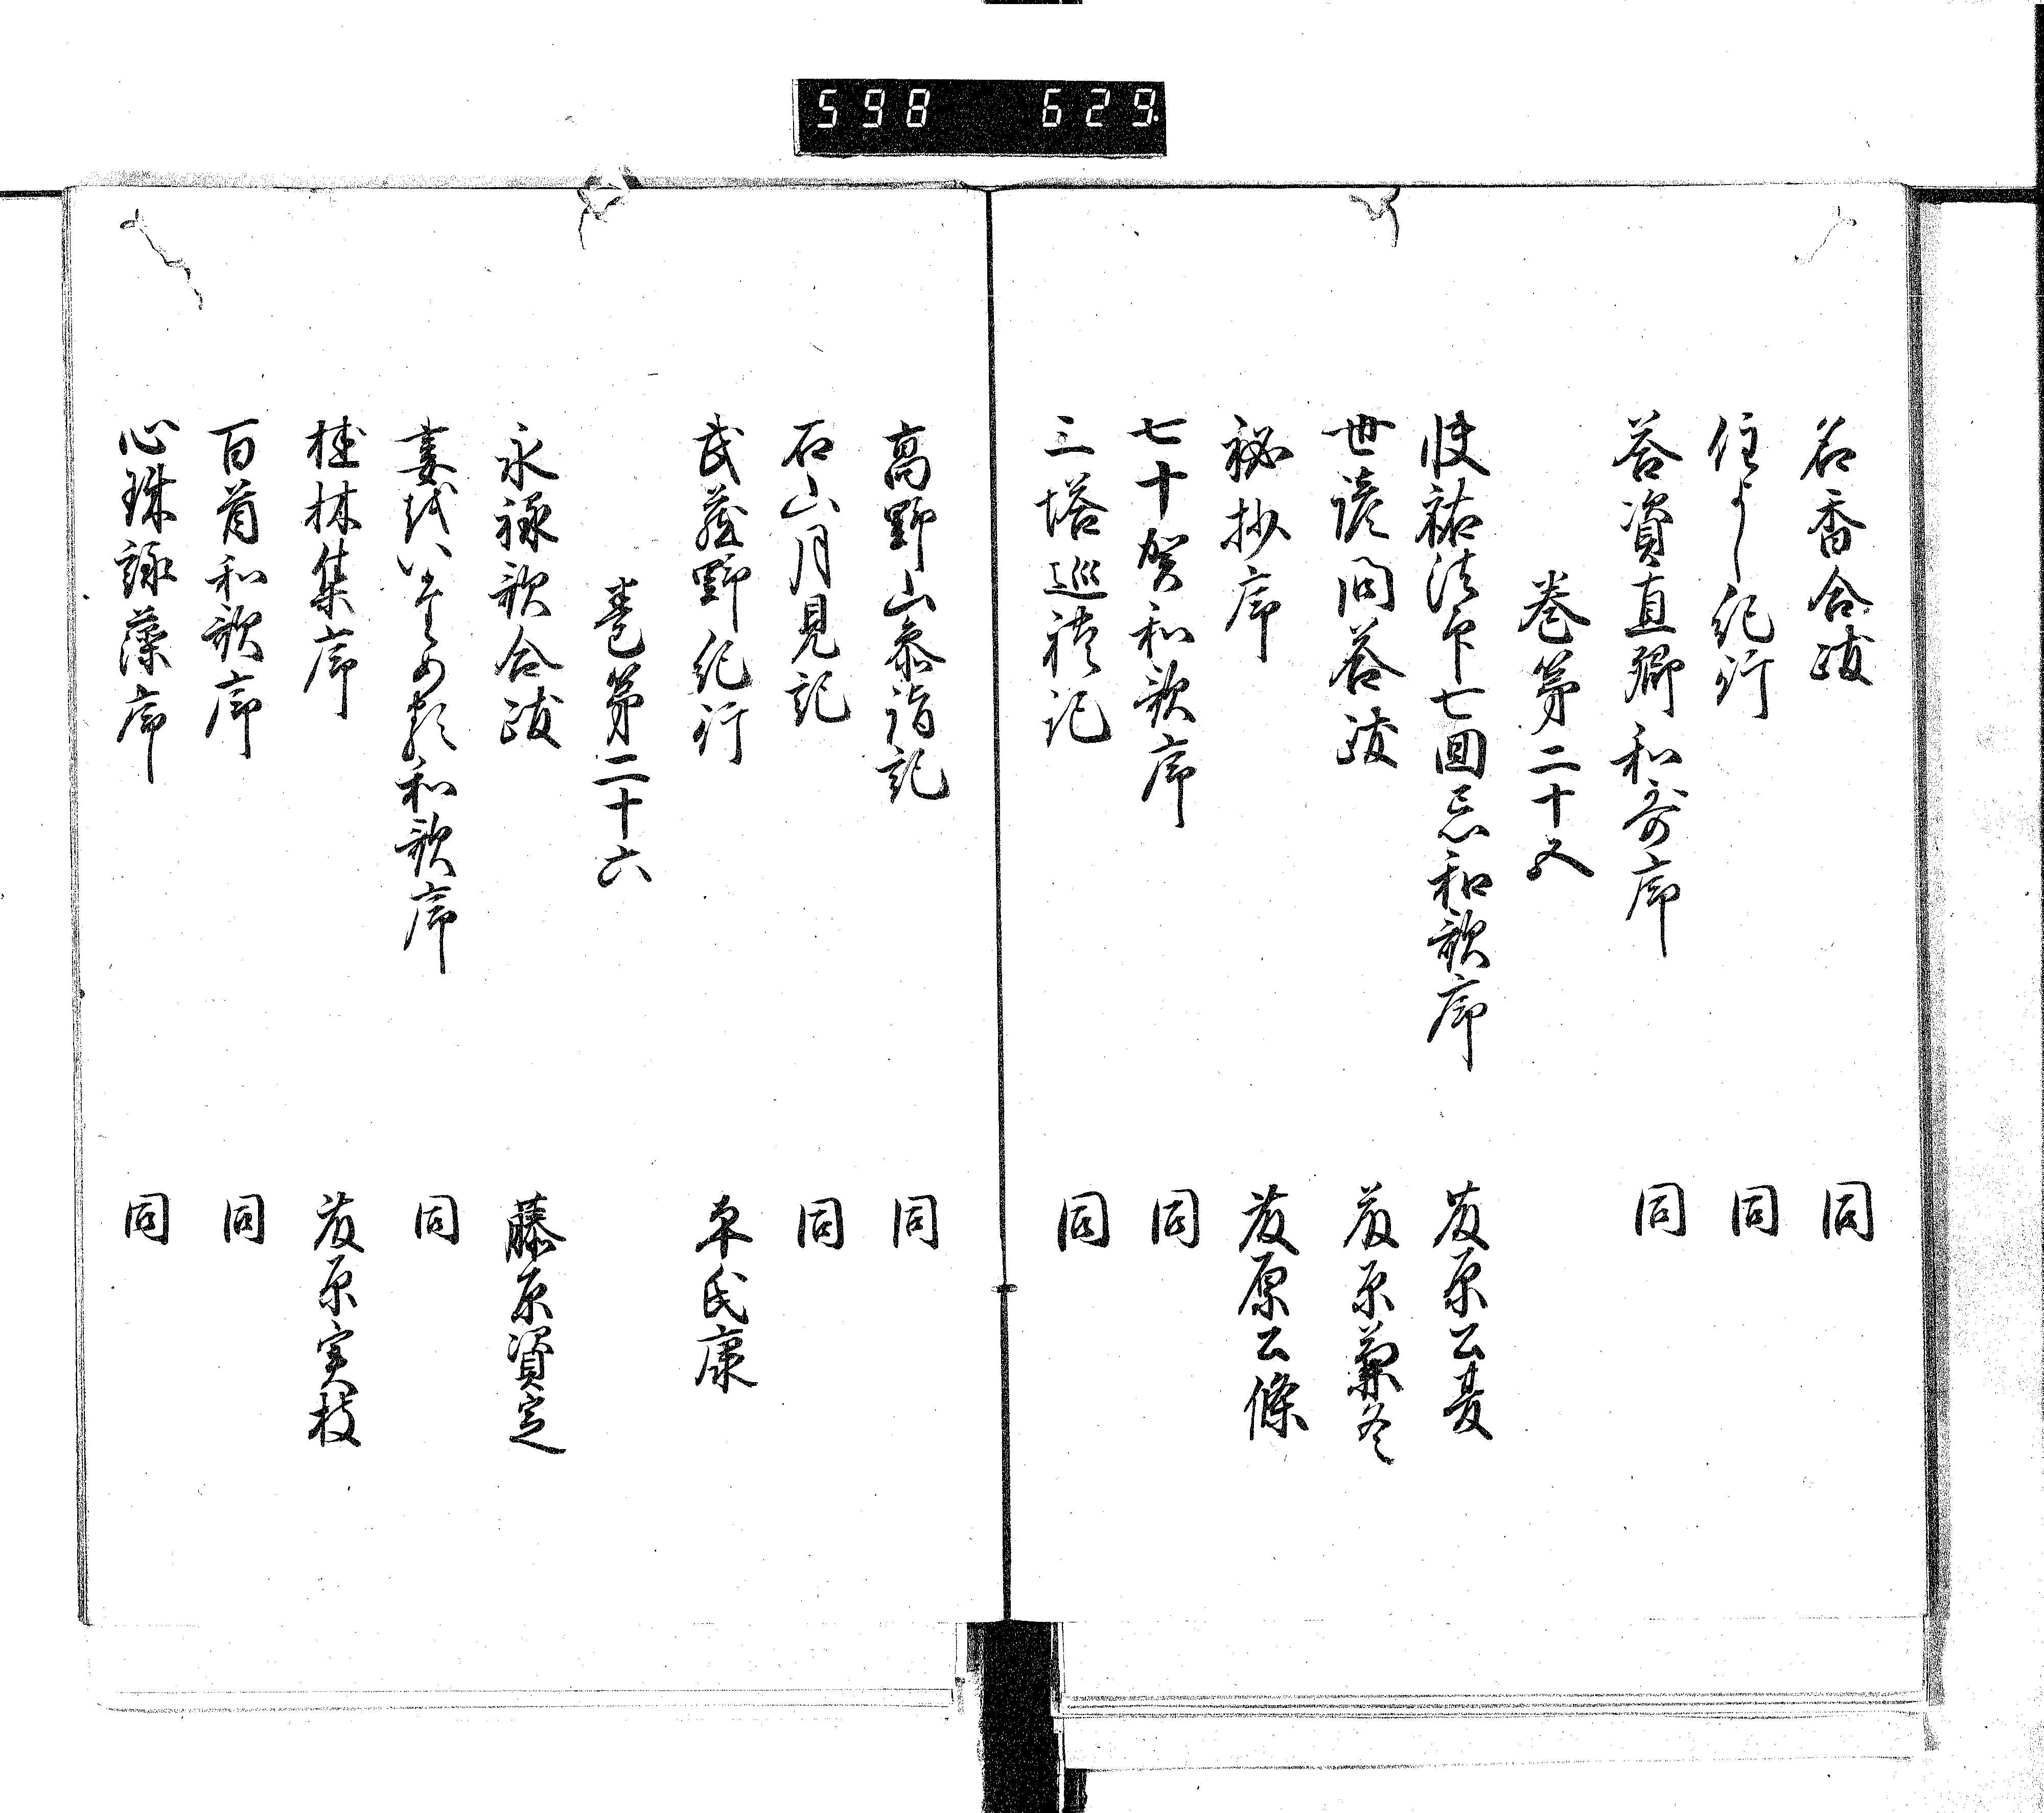 598 629
名香合跋 同
住よし紀行 同
答資直卿和哥序 同
巻第二十五
祐法印七回忌和歌序 藤原公夏
世諺問答跋 藤原兼冬
秘抄序 藤原公條
七十賀和歌序 同
三塔巡礼記 同
高野山参詣記 同
石山月見記 同
武蔵野紀行 平氏康
巻第二十六
永禄歌合跋 藤原資定
妻をいためる和歌序 同
桂林集序 藤原実枝
百首和歌序 同
心珠詠藻序 同